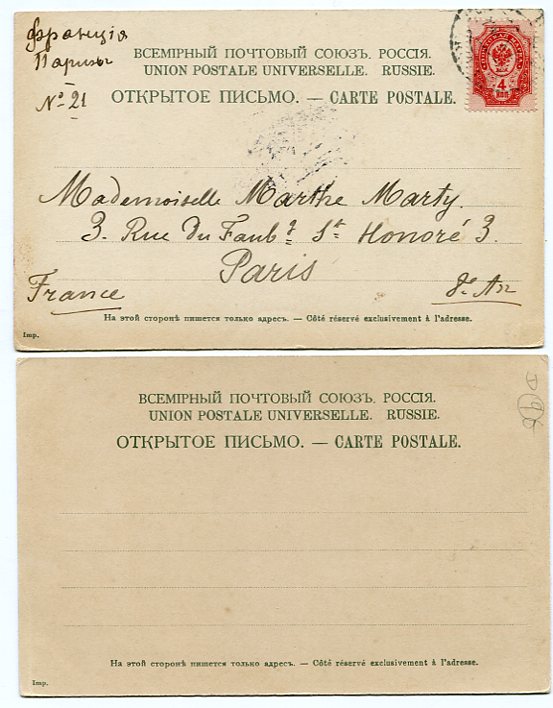 Франція
Парижъ
№ 21
ВСЕМІРНЫЙ ПОЧТОВЫЙ СОЮЗЪ. РОССІЯ.
UNION POSTALE UNIVERSELLE. RUSSIE.
ОТКРЫТОЕ ПИСЬМО. — CARTE POSTALE.
4
КОП.
Mademoiselle Marthe Marty.
3. Rue Du Faubg St Honoré 3.
Paris
France
8e Arr
На этой сторонѣ пишется только адресъ. — Côté réservé exclusivement à l'adresse.
Imp.
ВСЕМІРНЫЙ ПОЧТОВЫЙ СОЮЗЪ. РОССІЯ.
UNION POSTALE UNIVERSELLE. RUSSIE.
ОТКРЫТОЕ ПИСЬМО. — CARTE POSTALE.
На этой сторонѣ пишется только адресъ. — Côté réservé exclusivement à l'adresse.
Imp.